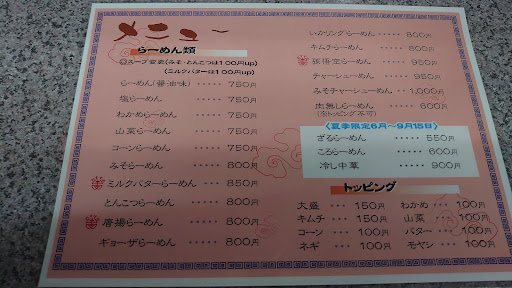 メニュー
らーめん類
◎スープ変更(みそ・とんこつは100円up)
(ミルクバターは100円up)
らーめん(醤油味) ・・・ 750円
塩らーめん ・・・ 750円
わかめらーめん ・・・ 750円
山菜らーめん ・・・ 750円
コーンらーめん ・・・ 750円
みそらーめん ・・・ 800円
ミルクバターらーめん ・・・ 850円
とんこつらーめん ・・・ 800円
唐揚らーめん ・・・ 800円
ギョーザらーめん ・・・ 800円
いかリングらーめん ・・・ 800円
キムチらーめん ・・・ 850円
孫悟空らーめん ・・・ 950円
チャーシューめん ・・・ 950円
みそチャーシューめん ・・・ 1,000円
肉無しらーめん ・・・ 600円
(※トッピング不可)
〈夏季限定6月〜9月15日〉
ざるらーめん ・・・・ 550円
ころらーめん ・・・・ 600円
冷し中華 ・・・・ 900円
トッピング
大盛 ・・・ 150円 わかめ ・・・ 100円
キムチ ・・・ 150円 山菜 ・・・ 100円
コーン ・・・ 100円 バター ・・・ 100円
ネギ ・・・ 100円 モヤシ ・・・ 100円